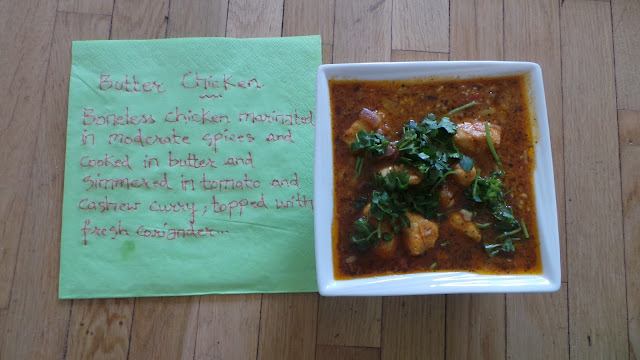 Butter Chicken
Boneless chicken marinated
in moderate spices and
cooked in butter and
simmered in tomato and
cashew curry, topped with
fresh coriander...